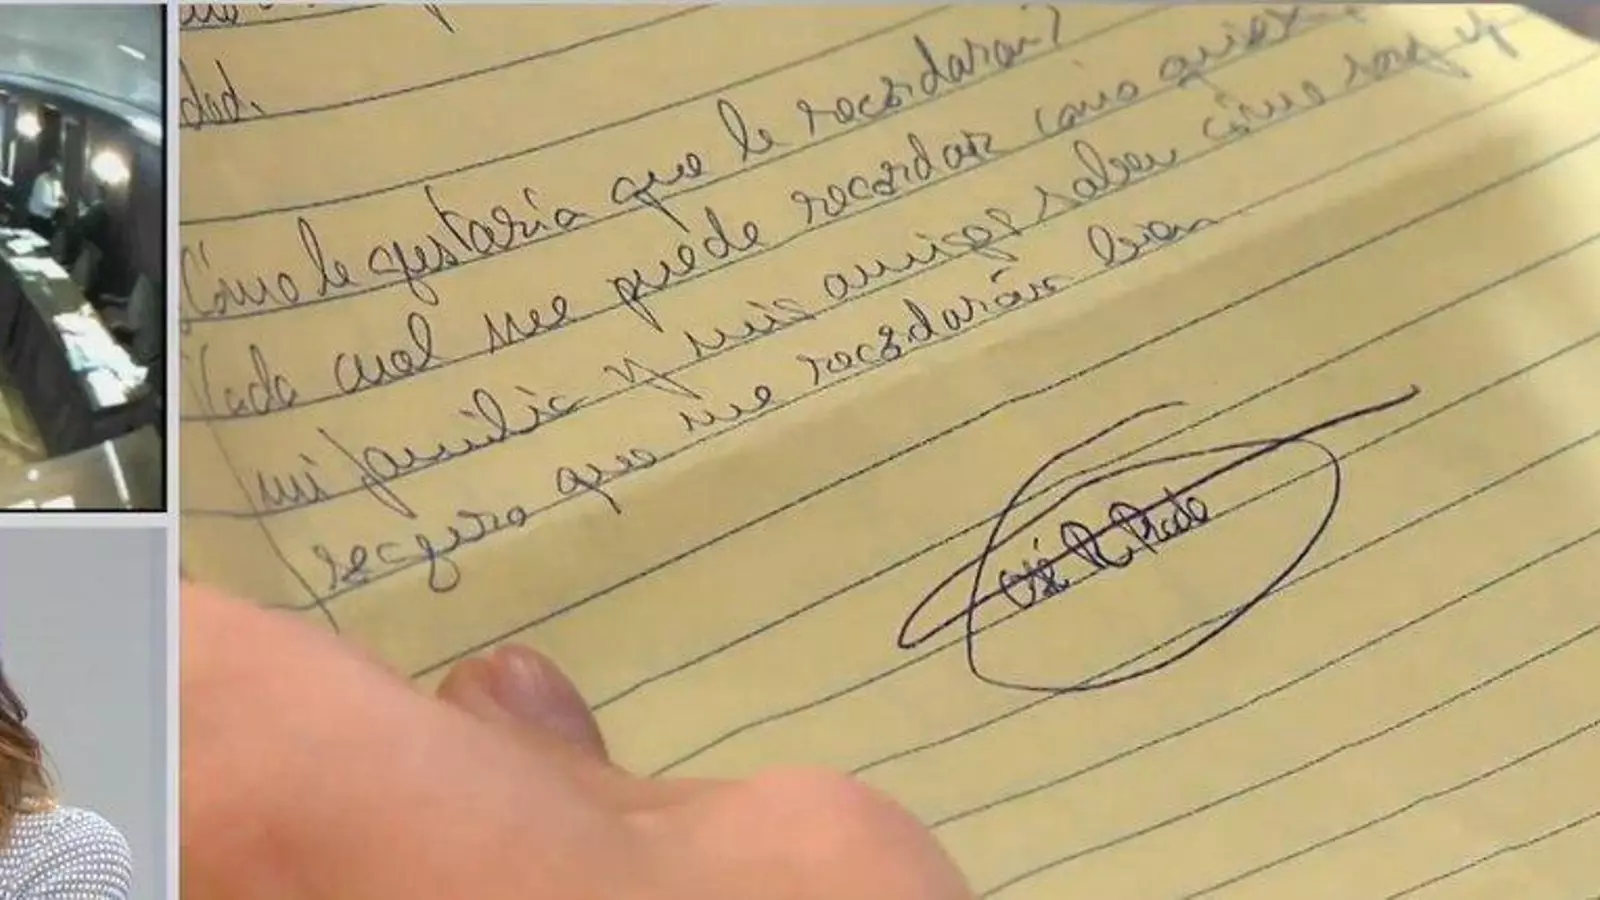 dad.
Cómo le gustaría que le recordaran?
Cada cual me puede recordar como quiera
mi familia y mis amigos saben cómo soy y
seguro que me recordarán bien
José R. Prado